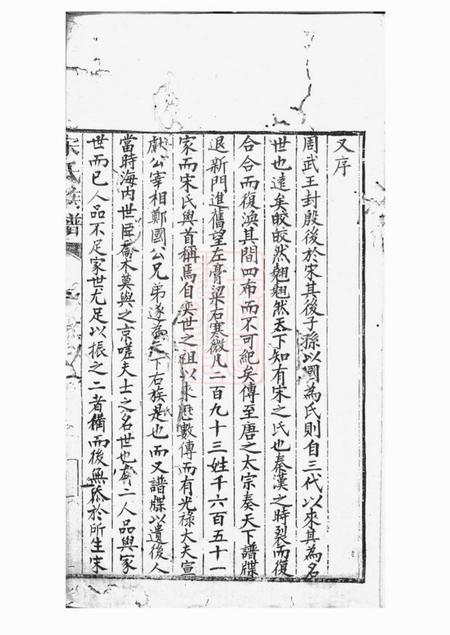 又序
周武王封殷後於宋其後子孫以國為氏則自三代以來其為名
世也遠矣皎皎然翹翹然天下知有宋之氏也秦漢之時裂而復
合合而復渙其間四布而不可紀矣傳至唐之太宗奏天下譜牒
退新門進舊望左膏粱右寒畯凡二百九十三姓千六百五十一
家而宋氏與首稱焉自奕世之祖以來歷數傳而有光祿大夫宣
獻公宰相鄭國公兄弟遂為天下右族是也而又譜牒以遺後人
當時海內世臣喬木莫與之京嗟夫士之名世也有二人品與家
世而已人品不足家世尤足以振之二者備而後無忝於所生宋
宋氏族譜